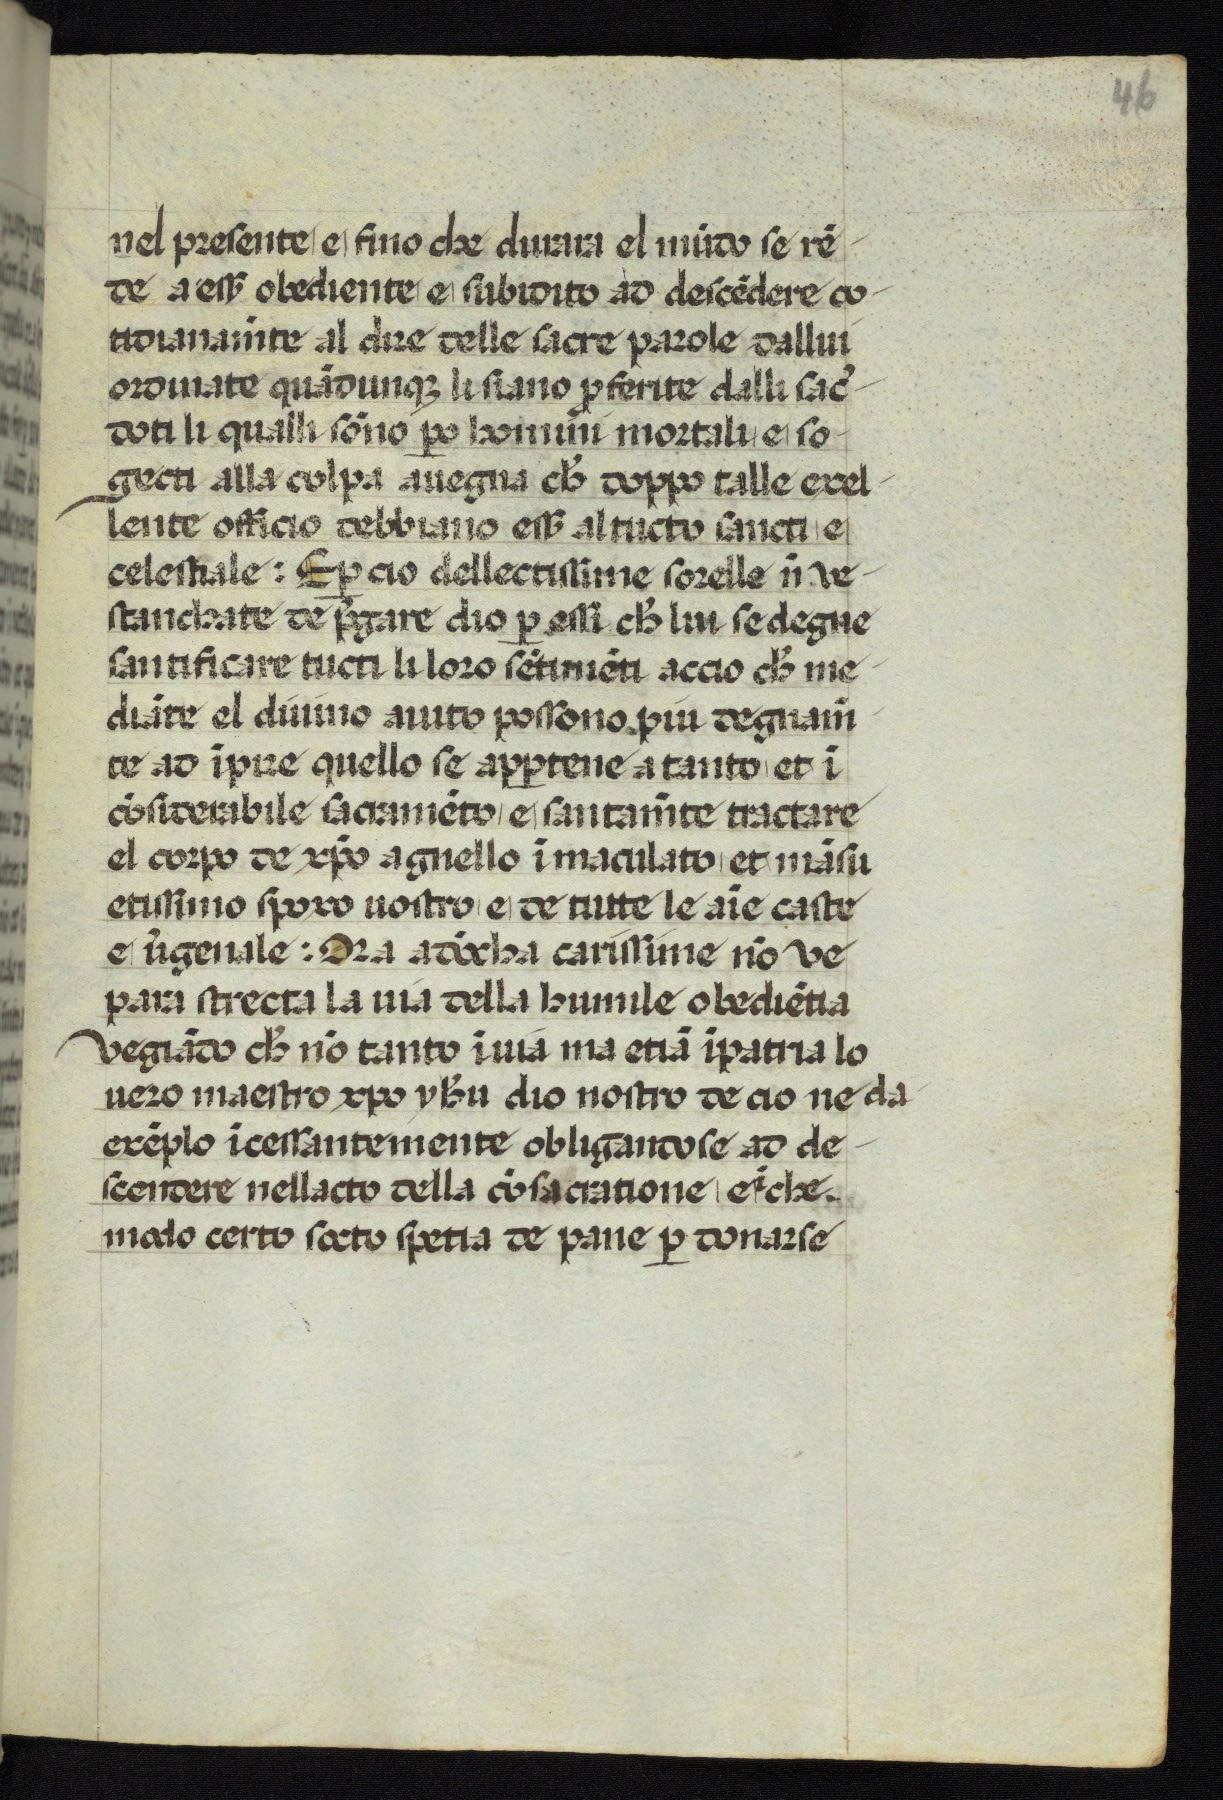 46
nel presente e fino che durara el mūdo se rē-
de a esſ obediente e subidito ad descēdere co-
tidianam̄te al dire delle sacre parole dallui
ordinate quādunqꝫ li siano ꝓferite dalli sac̉-
doti li qualli sōno ꝑo homini mortali e so-
gecti alla colpa auegna cħ doppo talle exel-
lente officio debbiano esſ al tucto sancti e
celestiale : E ꝑ cio dellectissime sorelle n̄ ve-
stanchate de p̄gare dio ꝑ essi cħ lui se degne
santificare tucti li loro sētimēti accio cħ me-
diāte el diuino aiuto possono piu degnam̄-
te ad īpire quello se apꝑtene a tanto et ī
cōsiderabile sacramēto e santam̄te tractare
el corpo de xp̄o agnello īmaculato et māsu
etissimo sposo uostro e de tutte le aīe caste
e v̄genale : Ora adōcha carissime nō ve
para strecta la uia della humile obediētia
vegiādo cħ nō tanto ī uia ma etiā ī patria lo
uero maestro xpo yħu dio nostro de cio ne da
exēplo īcessantemente obligandose ad de-
scendere nellacto della cōsacratione e ī che
modo certo socto spetia de pane ꝑ donarse